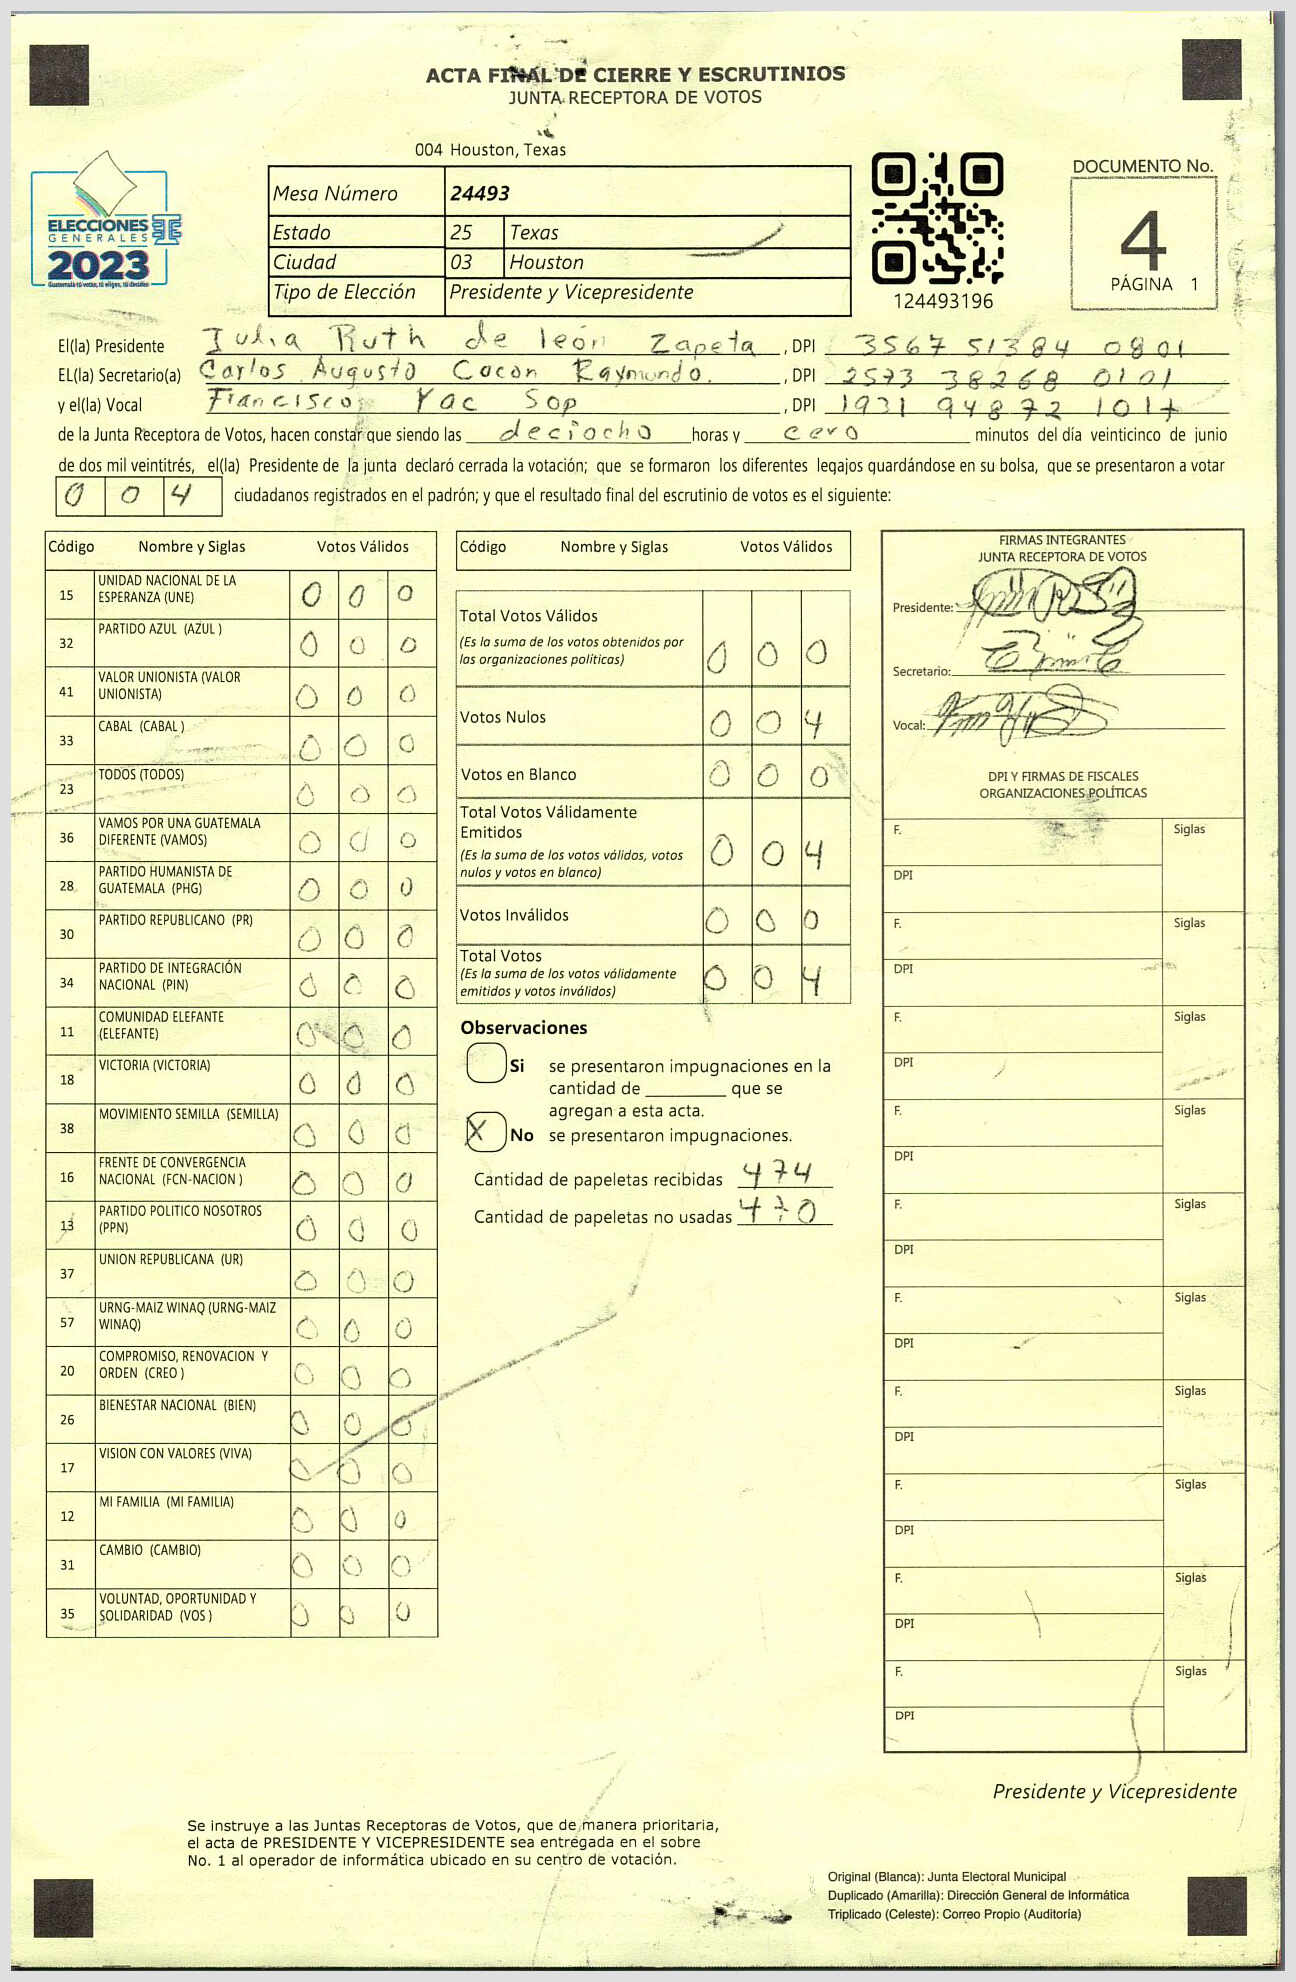 ACTA FINAL DE CIERRE Y ESCRUTINIOS
JUNTA RECEPTORA DE VOTOS
004 Houston, Texas
ELECCIONES
GENERALES
2023
Guatemala tú votas, tú eliges, tú decides
Mesa Número 24493
Estado 25 Texas
Ciudad 03 Houston
Tipo de Elección Presidente y Vicepresidente
124493196
DOCUMENTO No.
4
PÁGINA 1
El(la) Presidente Julia Ruth de león Zapeta, DPI 3567 51384 0801
EL(la) Secretario(a) Carlos Augusto Cocon Raymundo, DPI 2573 38268 0101
y el(la) Vocal Francisco Yac Sop, DPI 1931 94872 1017
de la Junta Receptora de Votos, hacen constar que siendo las deciocho horas y cero minutos del día veinticinco de junio
de dos mil veintitrés, el(la) Presidente de la junta declaró cerrada la votación; que se formaron los diferentes legajos guardándose en su bolsa, que se presentaron a votar
0 0 4 ciudadanos registrados en el padrón; y que el resultado final del escrutinio de votos es el siguiente:
Código Nombre y Siglas Votos Válidos
15 UNIDAD NACIONAL DE LA ESPERANZA (UNE) 0 0 0
32 PARTIDO AZUL (AZUL ) 0 0 0
41 VALOR UNIONISTA (VALOR UNIONISTA) 0 0 0
33 CABAL (CABAL ) 0 0 0
23 TODOS (TODOS) 0 0 0
36 VAMOS POR UNA GUATEMALA DIFERENTE (VAMOS) 0 0 0
28 PARTIDO HUMANISTA DE GUATEMALA (PHG) 0 0 0
30 PARTIDO REPUBLICANO (PR) 0 0 0
34 PARTIDO DE INTEGRACIÓN NACIONAL (PIN) 0 0 0
11 COMUNIDAD ELEFANTE (ELEFANTE) 0 0 0
18 VICTORIA (VICTORIA) 0 0 0
38 MOVIMIENTO SEMILLA (SEMILLA) 0 0 0
16 FRENTE DE CONVERGENCIA NACIONAL (FCN-NACION ) 0 0 0
13 PARTIDO POLITICO NOSOTROS (PPN) 0 0 0
37 UNION REPUBLICANA (UR) 0 0 0
57 URNG-MAIZ WINAQ (URNG-MAIZ WINAQ) 0 0 0
20 COMPROMISO, RENOVACION Y ORDEN (CREO ) 0 0 0
26 BIENESTAR NACIONAL (BIEN) 0 0 0
17 VISION CON VALORES (VIVA) 0 0 0
12 MI FAMILIA (MI FAMILIA) 0 0 0
31 CAMBIO (CAMBIO) 0 0 0
35 VOLUNTAD, OPORTUNIDAD Y SOLIDARIDAD (VOS ) 0 0 0
Código Nombre y Siglas Votos Válidos
Total Votos Válidos
(Es la suma de los votos obtenidos por
las organizaciones políticas) 0 0 0
Votos Nulos 0 0 4
Votos en Blanco 0 0 0
Total Votos Válidamente
Emitidos
(Es la suma de los votos válidos, votos
nulos y votos en blanco) 0 0 4
Votos Inválidos 0 0 0
Total Votos
(Es la suma de los votos válidamente
emitidos y votos inválidos) 0 0 4
Observaciones
Si se presentaron impugnaciones en la
cantidad de ________ que se
agregan a esta acta.
X No se presentaron impugnaciones.
Cantidad de papeletas recibidas 474
Cantidad de papeletas no usadas 470
FIRMAS INTEGRANTES
JUNTA RECEPTORA DE VOTOS
Presidente:
Secretario:
Vocal:
DPI Y FIRMAS DE FISCALES
ORGANIZACIONES POLÍTICAS
F. Siglas
DPI
F. Siglas
DPI
F. Siglas
DPI
F. Siglas
DPI
F. Siglas
DPI
F. Siglas
DPI
F. Siglas
DPI
F. Siglas
DPI
F. Siglas
DPI
F. Siglas
DPI
Presidente y Vicepresidente
Se instruye a las Juntas Receptoras de Votos, que de manera prioritaria,
el acta de PRESIDENTE Y VICEPRESIDENTE sea entregada en el sobre
No. 1 al operador de informática ubicado en su centro de votación.
Original (Blanca): Junta Electoral Municipal
Duplicado (Amarilla): Dirección General de Informática
Triplicado (Celeste): Correo Propio (Auditoría)